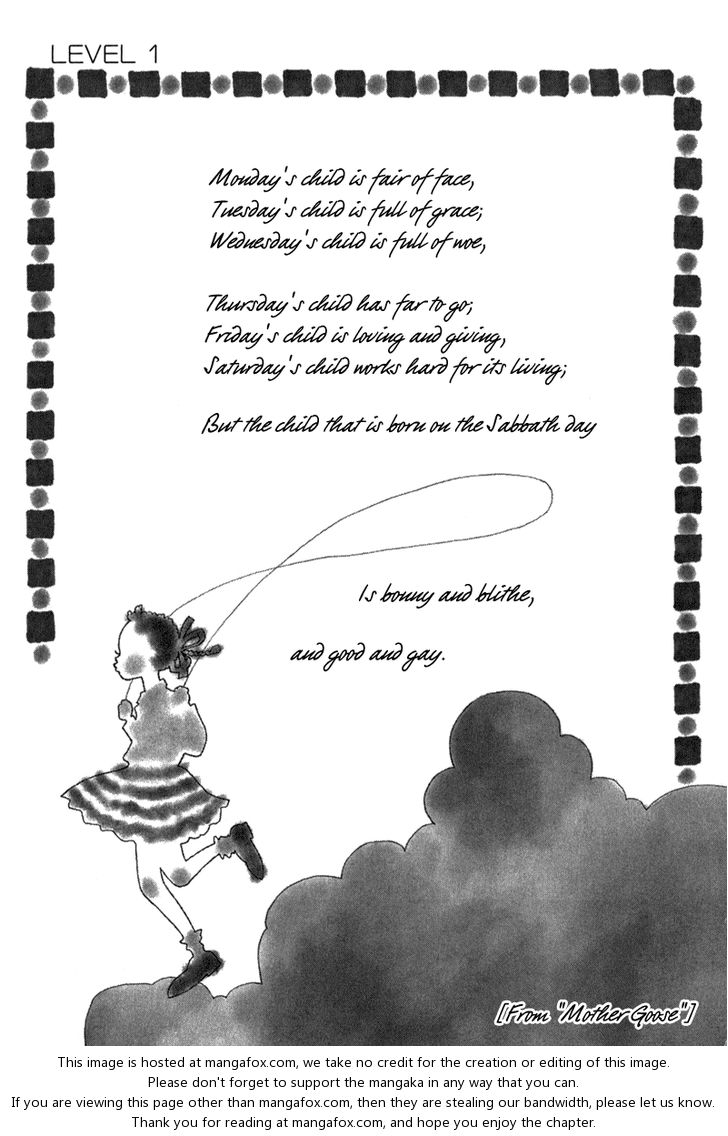 LEVEL 1
Monday's child is fair of face,
Tuesday's child is full of grace;
Wednesday's child is full of woe,
Thursday's child has far to go;
Friday's child is loving and giving,
Saturday's child works hard for its living;
But the child that is born on the Sabbath day
Is bonny and blithe,
and good and gay.
[From "Mother Goose"]
This image is hosted at mangafox.com, we take no credit for the creation or editing of this image.
Please don't forget to support the mangaka in any way that you can.
If you are viewing this page other than mangafox.com, then they are stealing our bandwidth, please let us know.
Thank you for reading at mangafox.com, and hope you enjoy the chapter.